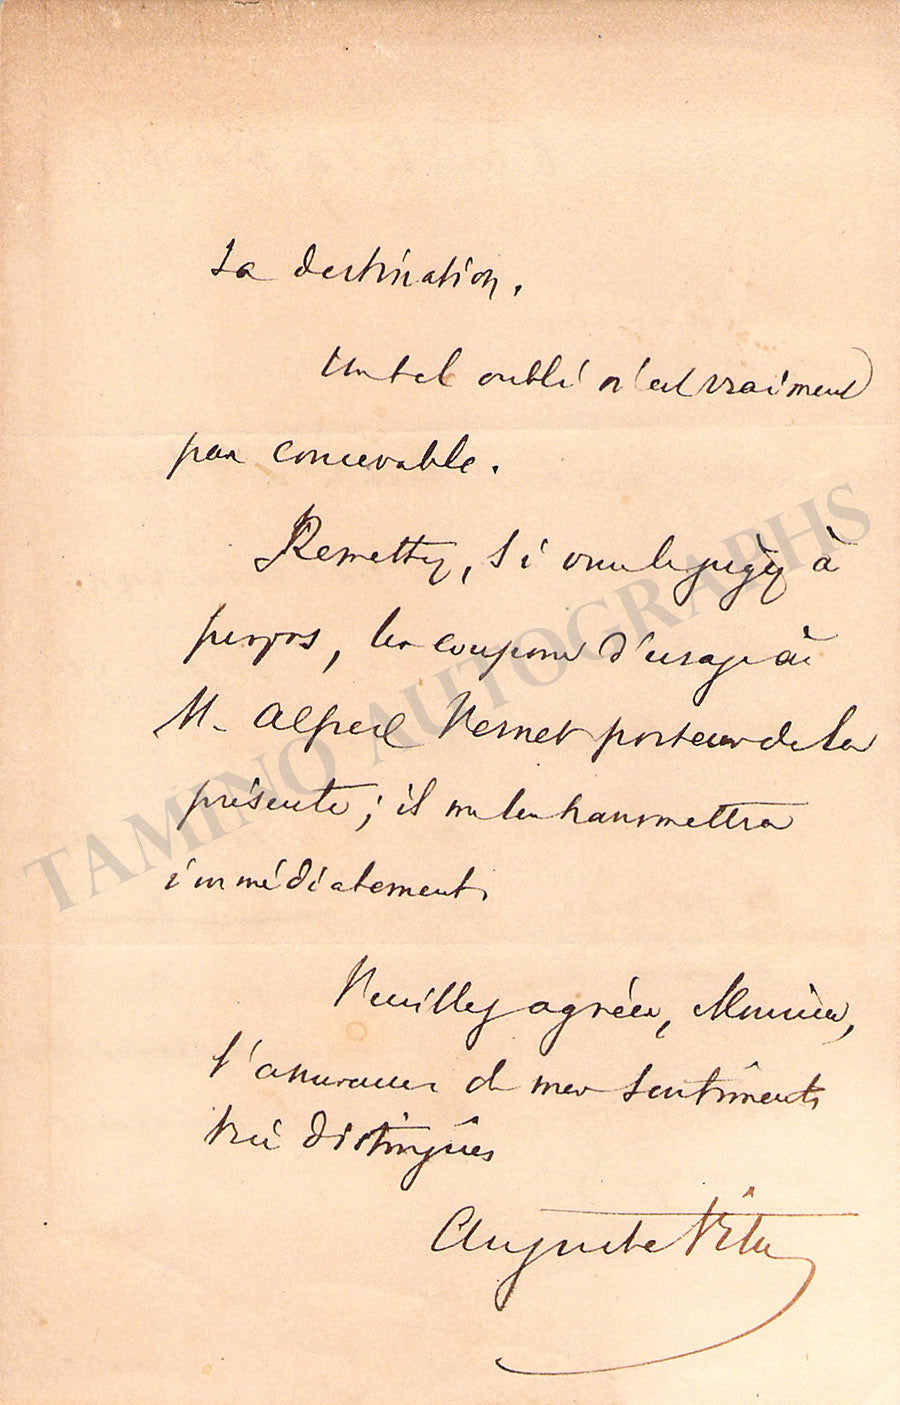 sa destination.
Un tel oubli n'est vraiment
pas concevable.
Remettez, si vous le jugez à
propos, les coupons d'usage à
M. Alfred Vernet porteur de la
présente ; il me les transmettra
immédiatement.
Veuillez agréer, Monsieur,
l'assurance de mes sentiments
très distingués
Auguste Vitu
TAMINO AUTOGRAPHS